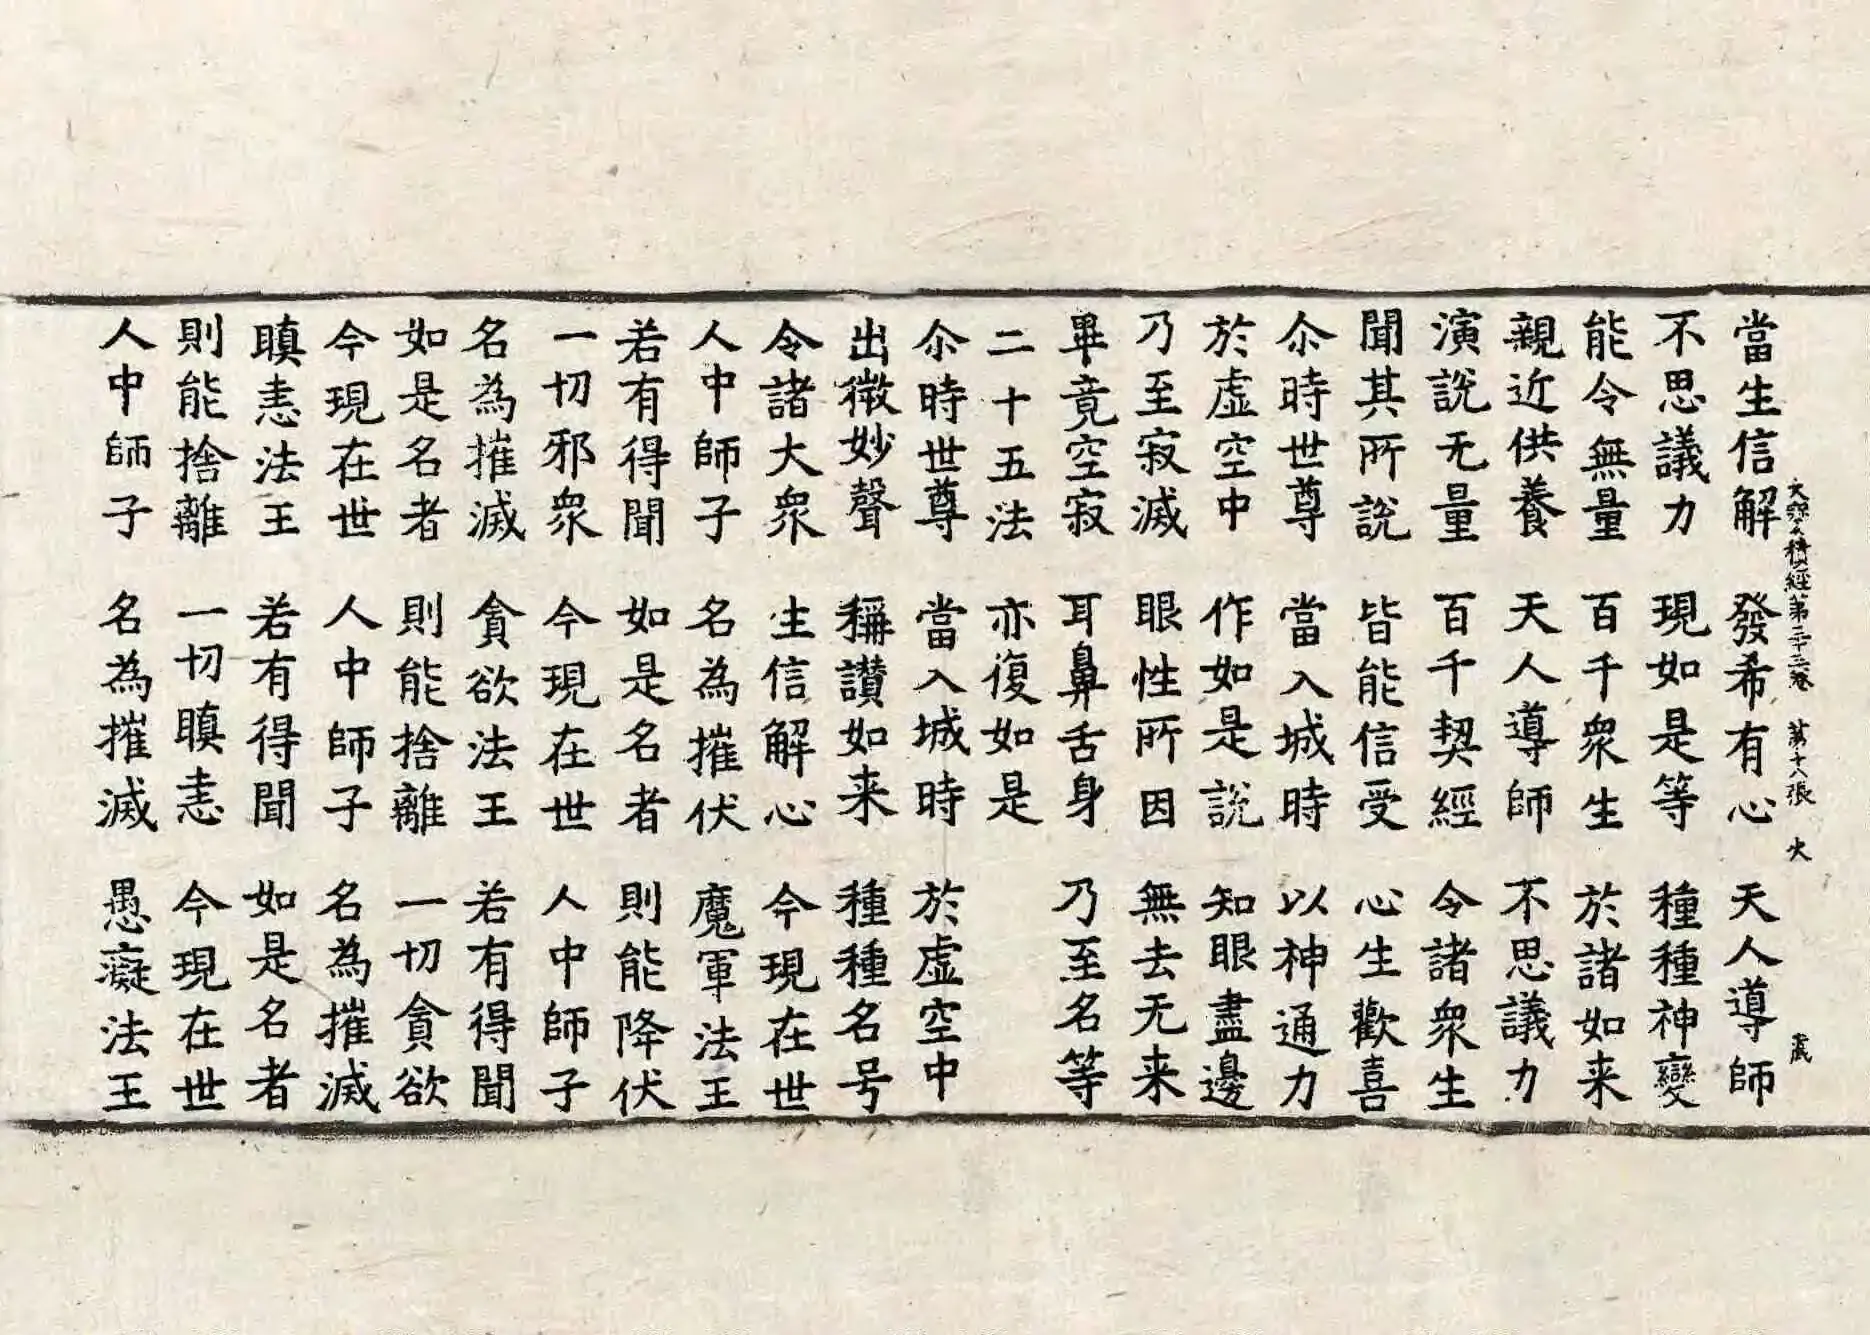 大寶積經第二十三卷 第十八張 火
當生信解 發希有心 天人導師
不思議力 現如是等 種種神變
能令無量 百千衆生 於諸如来
親近供養 天人導師 不思議力
演說无量 百千契經 令諸衆生
聞其所說 皆能信受 心生歡喜
尒時世尊 當入城時 以神通力
於虛空中 作如是說 知眼盡邊
乃至寂滅 眼性所因 無去无来
畢竟空寂 耳鼻舌身 乃至名等
二十五法 亦復如是
尒時世尊 當入城時 於虛空中
出微妙聲 稱讃如来 種種名号
令諸大衆 生信解心 今現在世
人中師子 名為摧伏 魔軍法王
若有得聞 如是名者 則能降伏
一切邪衆 今現在世 人中師子
名為摧滅 貪欲法王 若有得聞
如是名者 則能捨離 一切貪欲
今現在世 人中師子 名為摧滅
瞋恚法王 若有得聞 如是名者
則能捨離 一切瞋恚 今現在世
人中師子 名為摧滅 愚癡法王